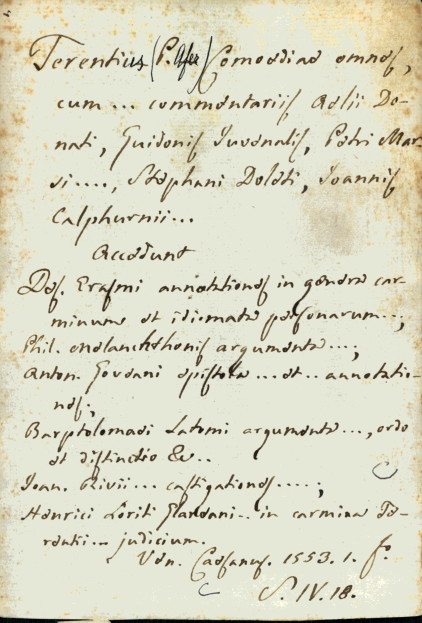 Terentius (P. Afer) Comoediae omnes,
cum ... commentariis Aelii Do-
nati, Guidonis Juvenalis, Petri Mar-
si ...., Stephani Doleti, Joannis
Calphurnii ...
Accedunt
Des. Erasmi annotationes in genera car-
minum et idiomata personarum ...;
Phil. Melanchthonis argumenta ...;
Anton. Goveani epistola ... et .. annotatio-
nes;
Bartolomaei Latomi argumenta ..., ordo
et distinctio &c..
Joan. Rivii ... castigationes .....;
Henrici Loriti Glareani .. in carmina Te-
rentii ... judicium.
Ven. Caesanus. 1553. 1. fo.
S. IV. 18.